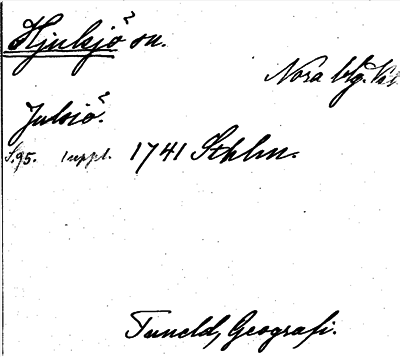 Hjulsjö sn.
Nora btg. Vs
Julsiö.
S.95. suppl. 1741 Sthlm.
Tuneld, Geografi.